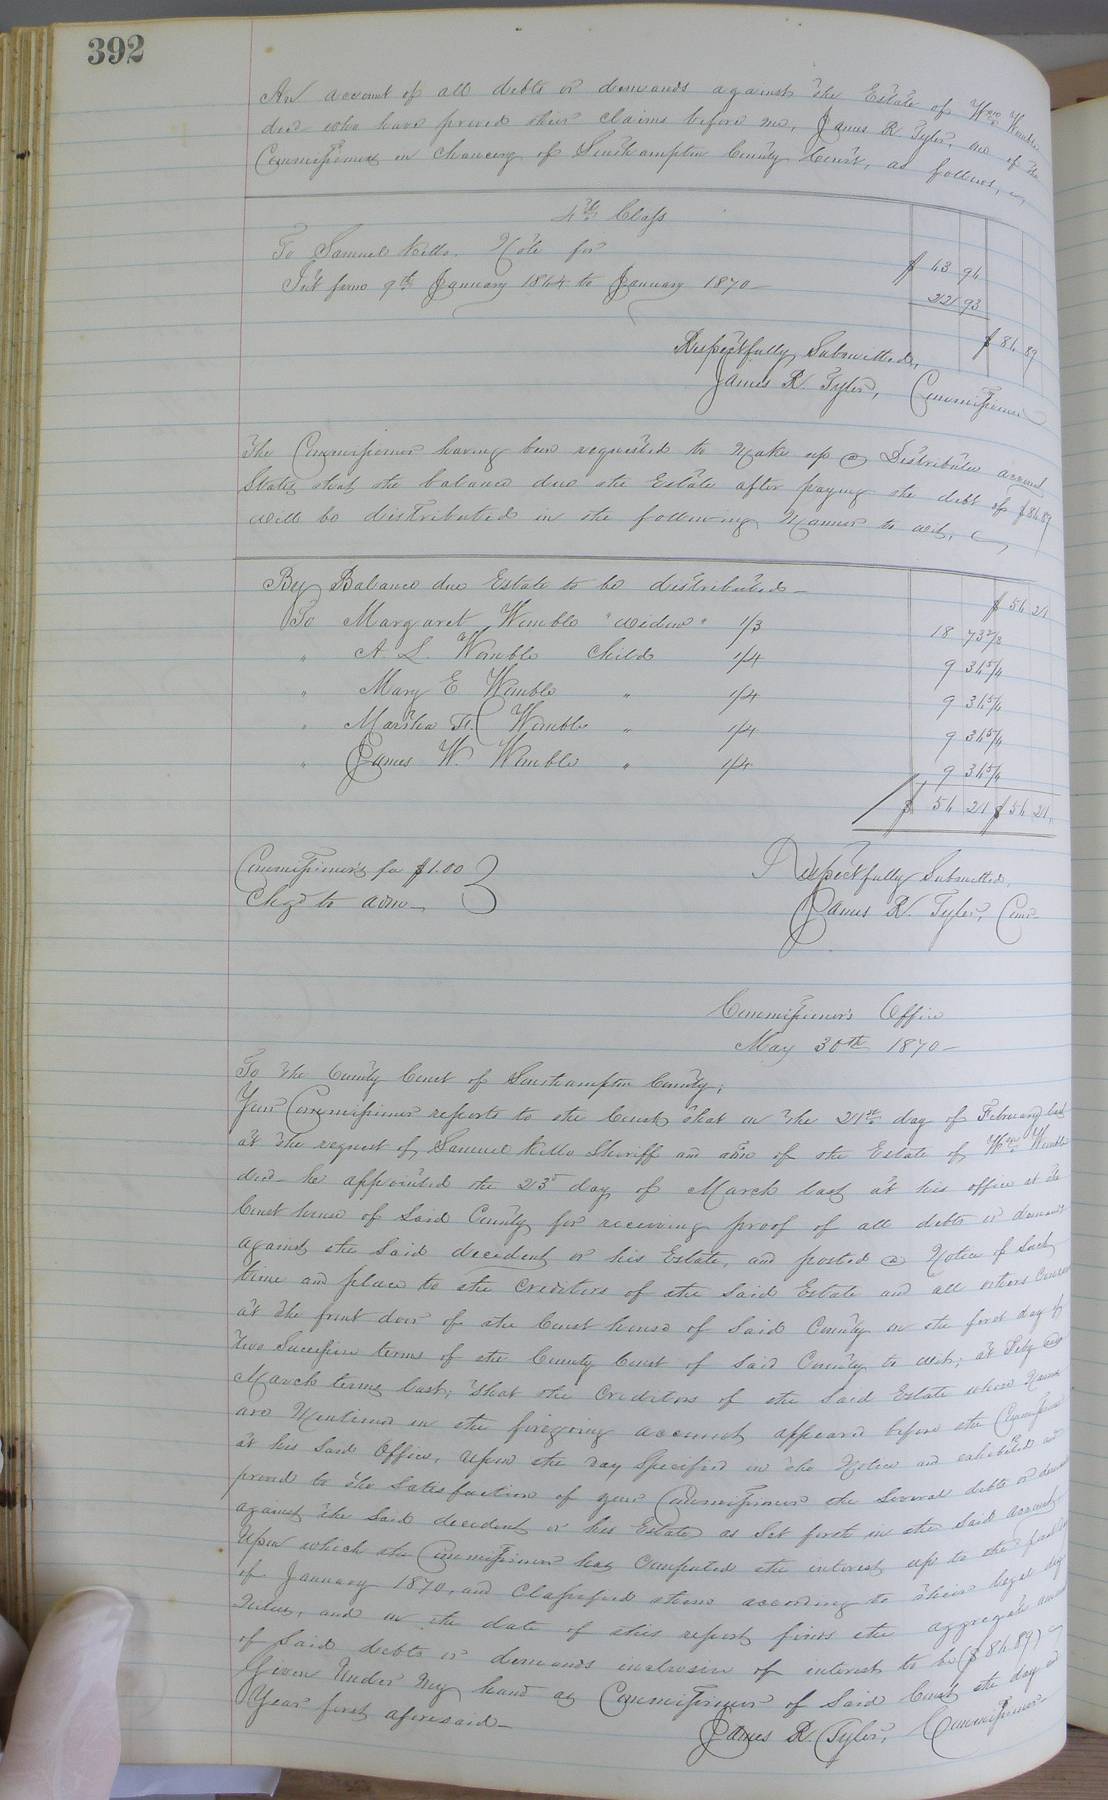 392
An account of all debts or demands against the Estate of Wm Womble
decd who have proved their claims before me, James R. Tyler, one of the
Commissioners in chancery of Southampton County Court, as follows,
4th Class
To Samuel Kello. Note for $ 63 96
Int from 9th January 1864 to January 1870 22 93
$ 86 89
Respectfully Submitted,
James R. Tyler, Commissioner
The Commissioner having been requested to make up a Distributive account
States that the balance due the Estate after paying the debt of $86.89
will be distributed in the following Manner to wit,
By Balance due Estate to be distributed $ 56 21
To Margaret Womble "widow" 1/3 18 73 2/3
" A. L. Womble Child 1/4 9 36 5/4
" Mary E Womble " 1/4 9 36 5/4
" Martha F. Womble " 1/4 9 36 5/4
" James W. Womble " 1/4 9 36 5/4
$ 56 21 $ 56 21
Commissioner's fee $1.00
Chgd to adm
Respectfully Submitted,
James R. Tyler, Comr
Commissioner's Office
May 30th 1870
To the County Court of Southampton County;
Your Commissioner reports to the Court that on the 21st day of February last
at the request of Samuel Kello Sheriff and adm of the Estate of Wm Womble
decd he appointed the 23d day of March last at his office at the
Court house of Said County for receiving proof of all debts or demands
against the Said decedent or his Estate, and posted a Notice of Such
time and place to the Creditors of the Said Estate and all others Concerned
at the front door of the Court house of Said County on the first day of
two Successive terms of the County Court of Said County to wit; at Feby and
March terms last; that the Creditors of the Said Estate whose Names
are Mentioned in the foregoing account appeared before the Commissioner
at his Said Office, upon the day Specified in the Notice and exhibited and
proved to the Satisfaction of your Commissioner the Several debts or demands
against the Said decedent or his Estate as Set forth in the Said account
Upon which the Commissioner has Computed the interest up to the
of January 1870, and Classified them according to their legal
and on the date of this report finds the aggregate amount
of Said debts or demands inclusive of interest to be ($86.89)
Given Under My hand as Commissioner of Said Court the day and
Year first aforesaid
James R. Tyler, Commissioner